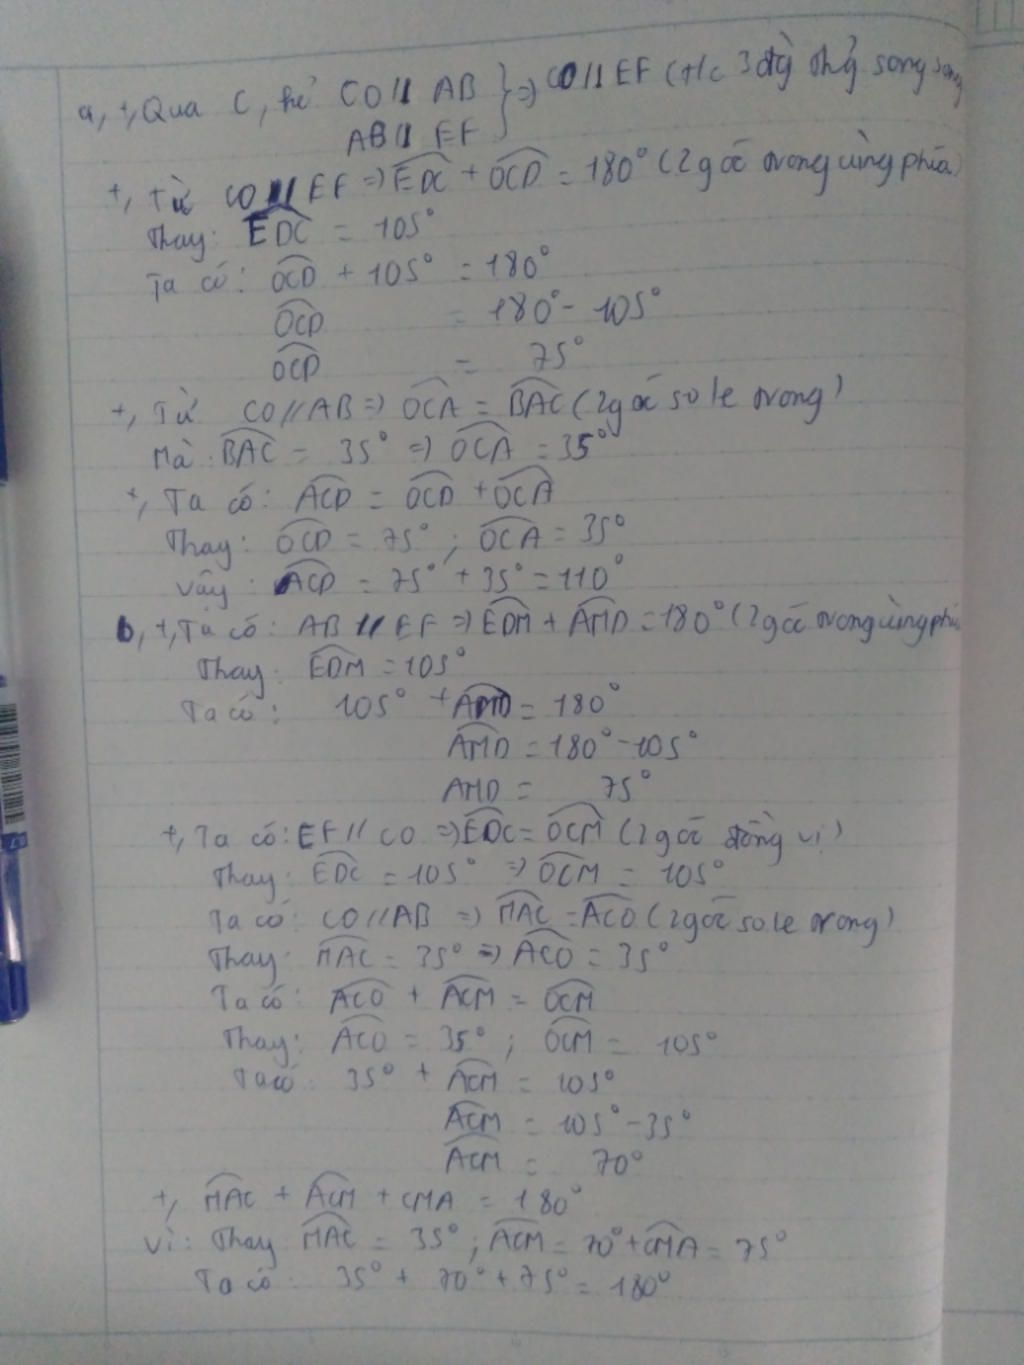 a, +, Qua C, kẻ CO // AB } => CO // EF (t/c 3 đg thẳg song song
AB // EF
+, Từ CO // EF => EDC + OCD = 180° (2 góc trong cùng phía)
Thay: EDC = 105°
Ta có: OCD + 105° = 180°
OCD = 180° - 105°
OCD = 75°
+, Từ CO // AB => OCA = BAC (2 góc so le trong)
Mà: BAC = 35° => OCA = 35°
+, Ta có: ACD = OCD + OCA
Thay: OCD = 75° ; OCA = 35°
Vậy: ACD = 75° + 35° = 110°
b, +, Ta có: AB // EF => EDM + AMD = 180° (2 góc trong cùng phía
Thay: EDM = 105°
Ta có: 105° + AMD = 180°
AMD = 180° - 105°
AMD = 75°
+, Ta có: EF // CO => EDC = OCM (2 góc đồng vị)
Thay: EDC = 105° => OCM = 105°
Ta có: CO // AB => MAC = ACO (2 góc so le trong)
Thay: MAC = 35° => ACO = 35°
Ta có: ACO + ACM = OCM
Thay: ACO = 35° ; OCM = 105°
Ta có: 35° + ACM = 105°
ACM = 105° - 35°
ACM = 70°
+, MAC + ACM + CMA = 180°
Vì: Thay MAC = 35° ; ACM = 70° + CMA = 75°
Ta có: 35° + 70° + 75° = 180°